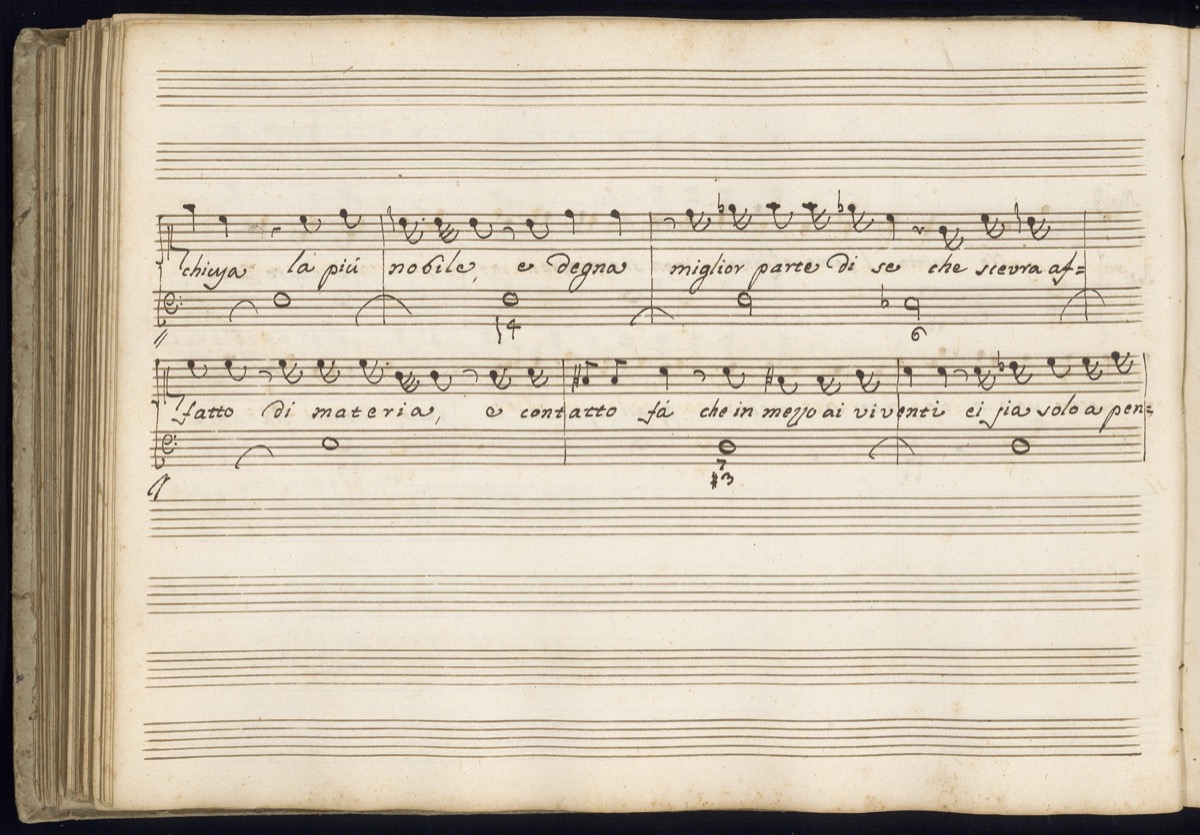 chiuja la più nobile, e degna miglior parte di se che scevra af=
4
6
fatto di materia, e contatto fà che in mezzo ai viventi ei sia solo a pen=
7
#3